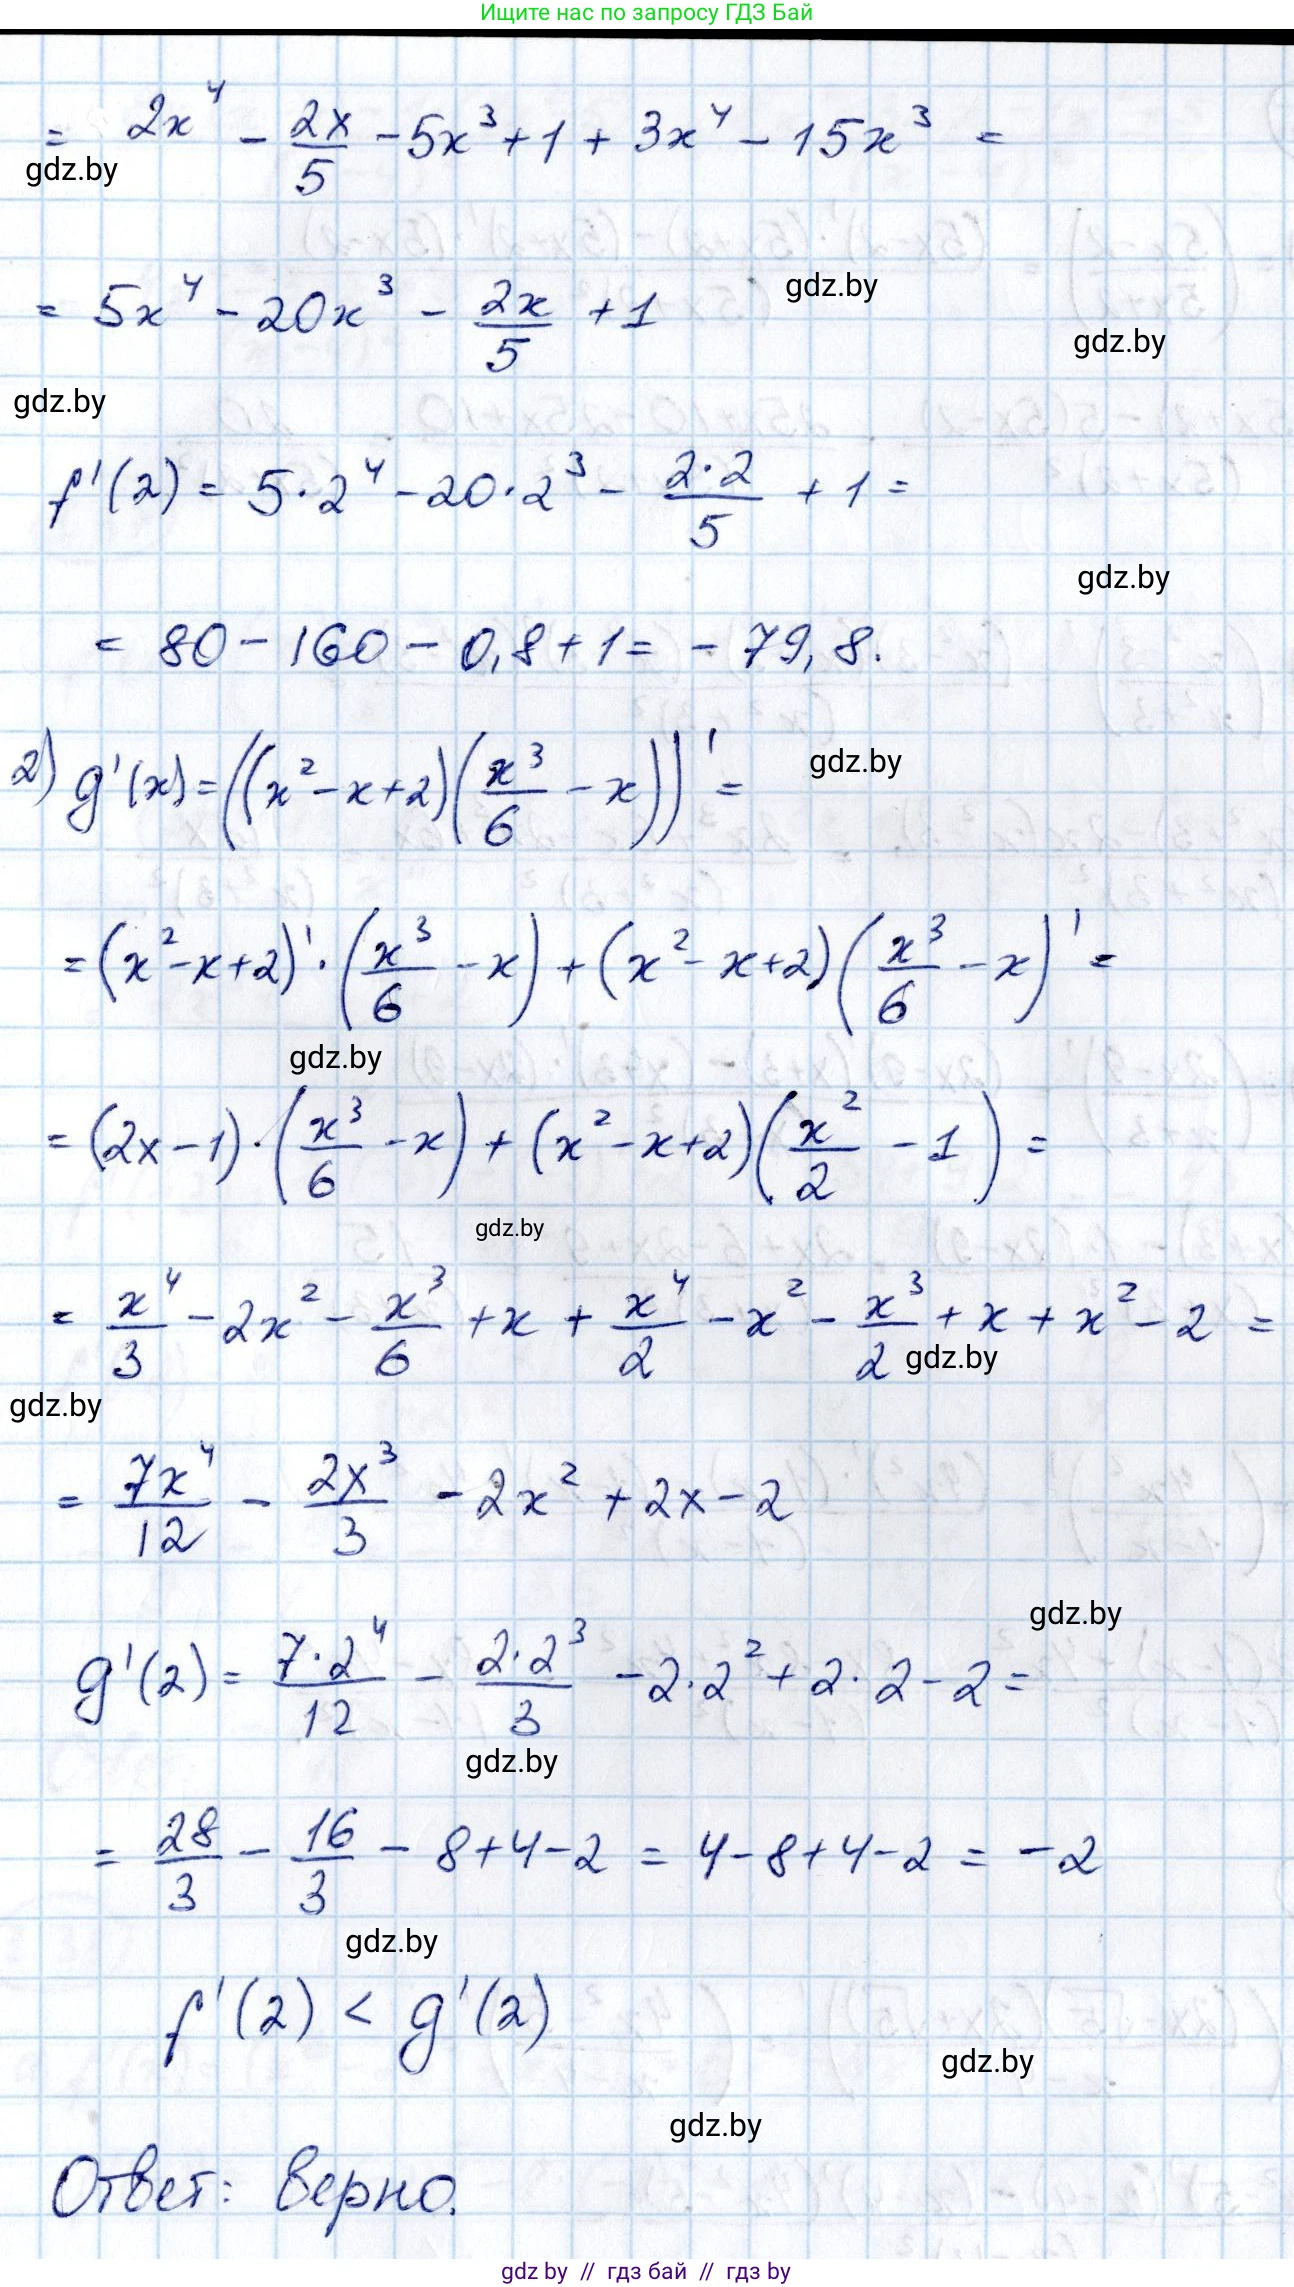 Ищите нас по запросу ГДЗ Бай
= 2x⁴ - 2x/5 - 5x³ + 1 + 3x⁴ - 15x³ =
gdz.by
= 5x⁴ - 20x³ - 2x/5 + 1
gdz.by
gdz.by
gdz.by
f'(2) = 5·2⁴ - 20·2³ - 2·2/5 + 1 =
gdz.by
= 80 - 160 - 0,8 + 1 = - 79,8.
2) g'(x) = ((x² - x + 2)(x³/6 - x))' =
gdz.by
= (x² - x + 2)'·(x³/6 - x) + (x² - x + 2)(x³/6 - x)' =
gdz.by
= (2x - 1)·(x³/6 - x) + (x² - x + 2)(x²/2 - 1) =
gdz.by
= x⁴/3 - 2x² - x³/6 + x + x⁴/2 - x² - x³/2 + x + x² - 2 =
gdz.by
gdz.by
= 7x⁴/12 - 2x³/3 - 2x² + 2x - 2
gdz.by
g'(2) = 7·2⁴/12 - 2·2³/3 - 2·2² + 2·2 - 2 =
gdz.by
= 28/3 - 16/3 - 8 + 4 - 2 = 4 - 8 + 4 - 2 = -2
gdz.by
f'(2) < g'(2)
gdz.by
gdz.by
Ответ: верно.
gdz by // гдз бай // гдз by